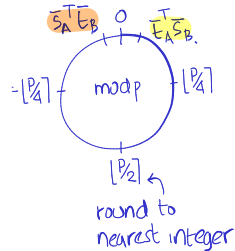 S̄ₐᵀ Ē_B 0 Ēₐᵀ S̄_B.
-⌊P/4⌉ modp ⌊P/4⌉
⌊P/2⌉
round to
nearest integer